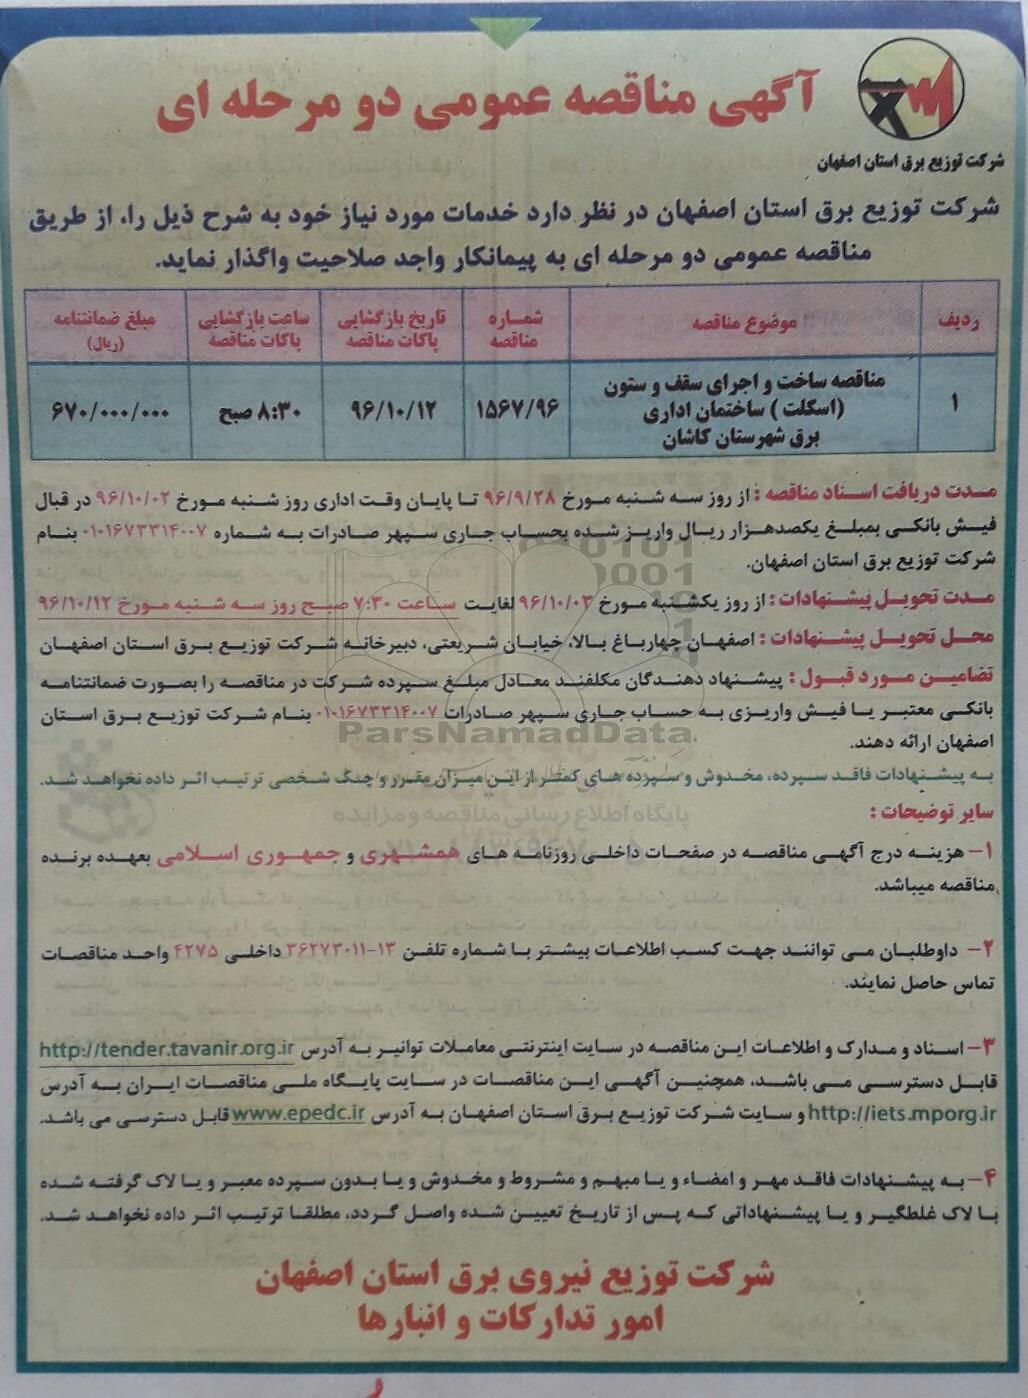 آگهی مناقصه عمومی دو مرحله ای
شرکت توزیع برق استان اصفهان
شرکت توزیع برق استان اصفهان در نظر دارد خدمات مورد نیاز خود به شرح ذیل را، از طریق
مناقصه عمومی دو مرحله ای به پیمانکار واجد صلاحیت واگذار نماید.
ردیف
موضوع مناقصه
شماره مناقصه
تاریخ بازگشایی پاکات مناقصه
ساعت بازگشایی پاکات مناقصه
مبلغ ضمانتنامه (ریال)
۱
مناقصه ساخت و اجرای سقف و ستون
(اسکلت ) ساختمان اداری
برق شهرستان کاشان
۱۵۶۷/۹۶
۹۶/۱۰/۱۲
۸:۳۰ صبح
۶۷۰/۰۰۰/۰۰۰
مدت دریافت اسناد مناقصه : از روز سه شنبه مورخ ۹۶/۹/۲۸ تا پایان وقت اداری روز شنبه مورخ ۹۶/۱۰/۰۲ در قبال
فیش بانکی بمبلغ یکصدهزار ریال واریز شده بحساب جاری سپهر صادرات به شماره ۰۱۰۱۶۷۳۳۱۴۰۰۷ بنام
شرکت توزیع برق استان اصفهان.
مدت تحویل پیشنهادات : از روز یکشنبه مورخ ۹۶/۱۰/۰۳ لغایت ساعت ۷:۳۰ صبح روز سه شنبه مورخ ۹۶/۱۰/۱۲
محل تحویل پیشنهادات : اصفهان چهارباغ بالا، خیابان شریعتی، دبیرخانه شرکت توزیع برق استان اصفهان
تضامین مورد قبول : پیشنهاد دهندگان مکلفند معادل مبلغ سپرده شرکت در مناقصه را بصورت ضمانتنامه
بانکی معتبر یا فیش واریزی به حساب جاری سپهر صادرات ۰۱۰۱۶۷۳۳۱۴۰۰۷ بنام شرکت توزیع برق استان
اصفهان ارائه دهند.
ParsNamadData
به پیشنهادات فاقد سپرده، مخدوش و سپرده های کمتر از این میزان مقرر و چک شخصی ترتیب اثر داده نخواهد شد.
پایگاه اطلاع رسانی مناقصه و مزایده
سایر توضیحات :
۱- هزینه درج آگهی مناقصه در صفحات داخلی روزنامه های همشهری و جمهوری اسلامی بعهده برنده
مناقصه میباشد.
۲- داوطلبان می توانند جهت کسب اطلاعات بیشتر با شماره تلفن ۱۳-۳۶۲۷۳۰۱۱ داخلی ۴۲۷۵ واحد مناقصات
تماس حاصل نمایند.
۳- اسناد و مدارک و اطلاعات این مناقصه در سایت اینترنتی معاملات توانیر به آدرس http://tender.tavanir.org.ir
قابل دسترسی می باشد، همچنین آگهی این مناقصات در سایت پایگاه ملی مناقصات ایران به آدرس
http://iets.mporg.ir و سایت شرکت توزیع برق استان اصفهان به آدرس www.epedc.ir قابل دسترسی می باشد.
۴- به پیشنهادات فاقد مهر و امضاء و یا مبهم و مشروط و مخدوش و یا بدون سپرده معبر و یا لاک گرفته شده
با لاک غلطگیر و یا پیشنهاداتی که پس از تاریخ تعیین شده واصل گردد، مطلقا ترتیب اثر داده نخواهد شد.
شرکت توزیع نیروی برق استان اصفهان
امور تدارکات و انبارها